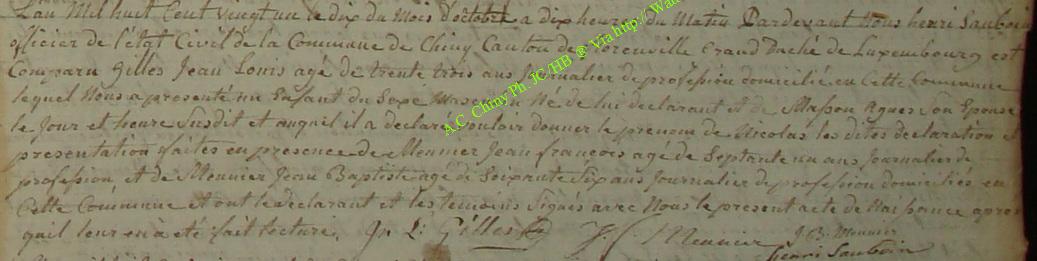 L'an Mil huit Cent vingt un le dix du Mois d'octobre a dix heures du Matin Pardevant Nous henri Sauboin
officier de l'état Civil de la Commune de Chiny Canton de florenville Grand Duché de Luxembourg est
Comparu Gilles Jean Louis agé de trente trois ans Journalier de profession domicilié en Cette Commune
lequel Nous a presenté un Enfant du Sexe Masculin Né de lui declarant et de Masson Agnes son Epouse
le Jour et heure Susdit et auquel il a declaré vouloir donner le prenom de Nicolas les dites declaration et
presentation faites en presence de Meunier Jean françois agé de Septante un ans Journalier de
profession et de Meunier Jean Baptiste agé de Soixante Six ans Journalier de profession domiciliés en
Cette Commune et ont le declarant et les temoins Signés avec Nous le present acte de Naissance apres
quil leur en a été fait lecture. Jn L: Gilles J. f. Meunier J. B. Meunier
henri Sauboin
A.C. Chiny Ph. JC/HB @ Via http://Wa